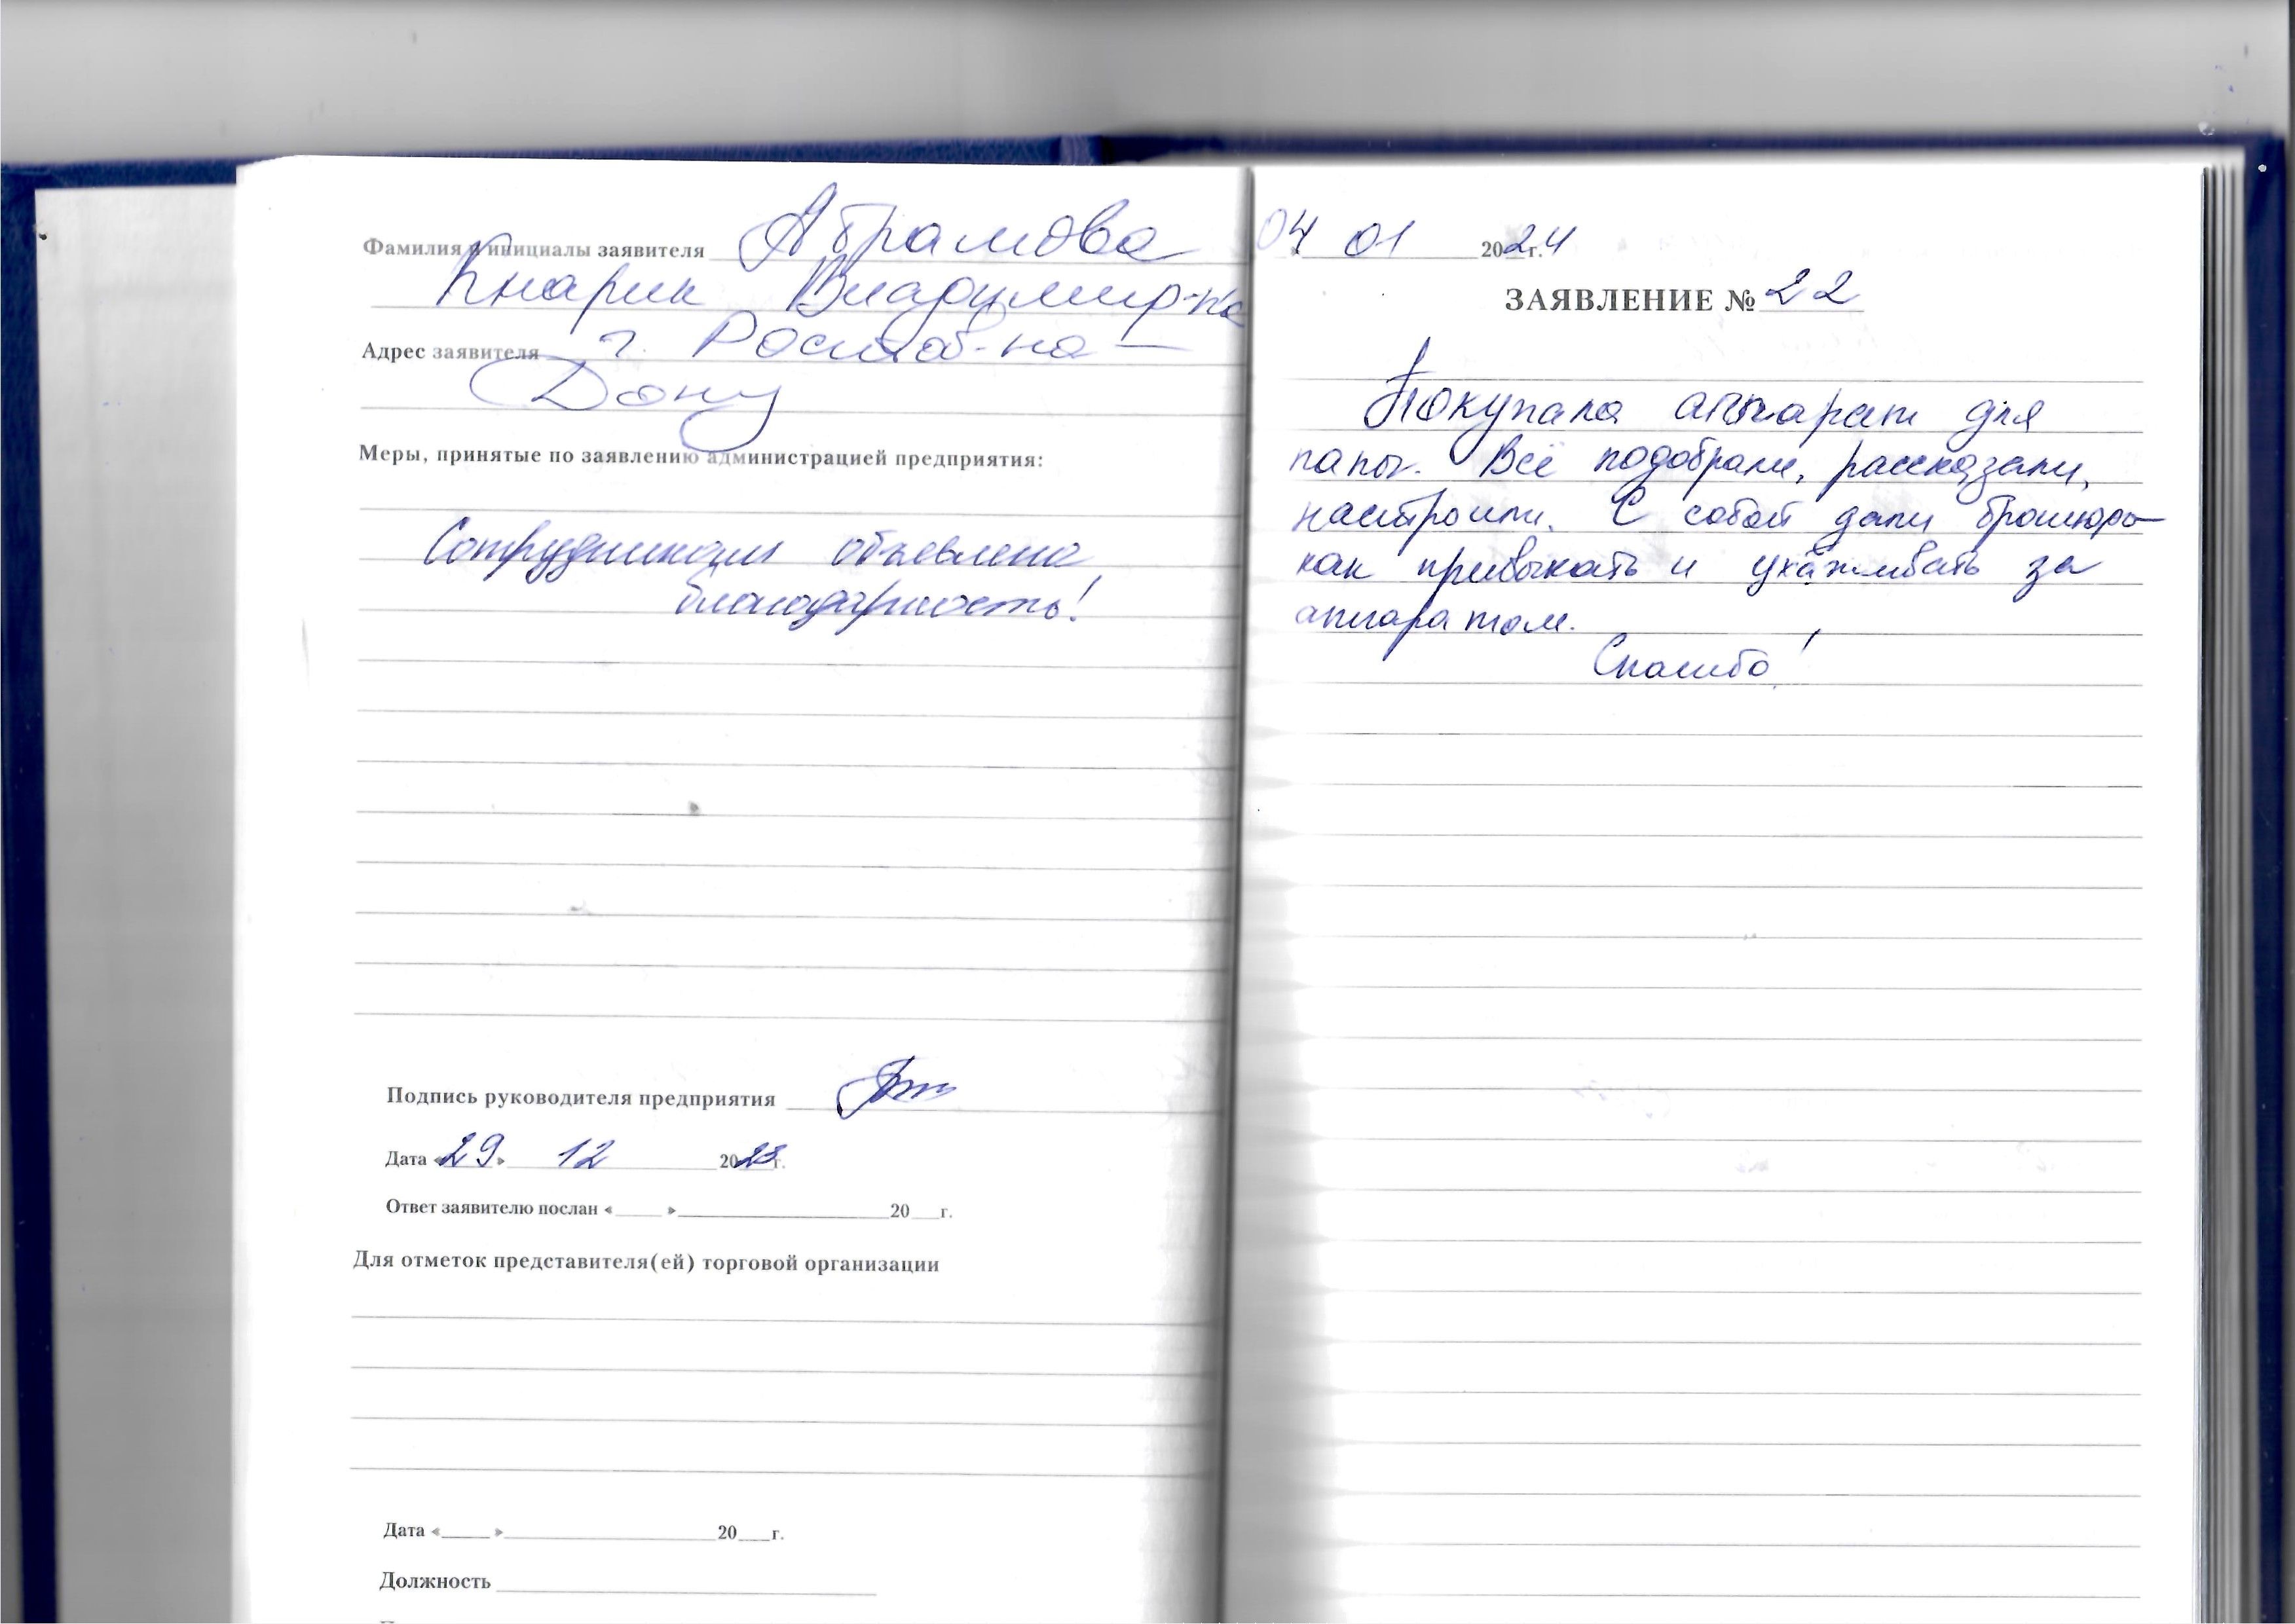 Фамилия и инициалы заявителя Абрамова
Кнарик Владимир-на
Адрес заявителя г. Ростов-на-
Дону
Меры, принятые по заявлению администрацией предприятия:
Сотрудникам объявлена
благодарность!
Подпись руководителя предприятия
Дата «29» 12 2023г.
Ответ заявителю послан «____» ____ 20__г.
Для отметок представителя(ей) торговой организации
Дата «____» ____ 20__г.
Должность
04 01 2024г.
ЗАЯВЛЕНИЕ № 22
Покупала аппарат для
папы. Всё подобрали, рассказали,
настроили. С собой дали брошюру
как привыкать и ухаживать за
аппаратом.
Спасибо!